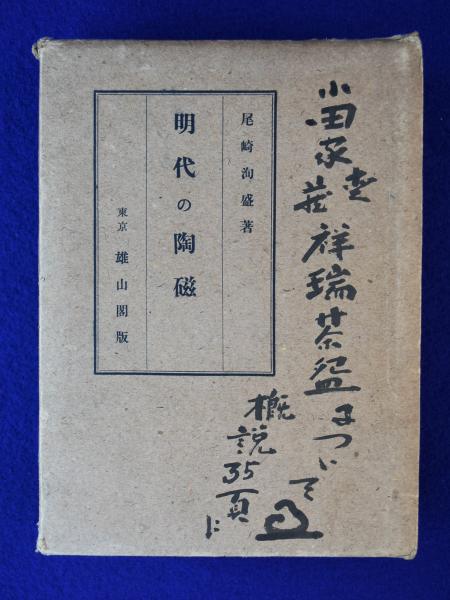 當家蔵祥瑞茶盌について
概説
35頁に
尾崎洵盛著
明代の陶磁
東京 雄山閣版